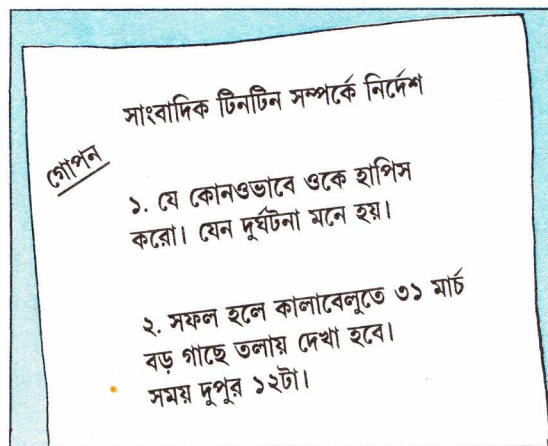 সাংবাদিক টিনটিন সম্পর্কে নির্দেশ
গোপন
১. যে কোনওভাবে ওকে হাপিস
করো। যেন দুর্ঘটনা মনে হয়।
২. সফল হলে কালাবেলুতে ৩১ মার্চ
বড় গাছে তলায় দেখা হবে।
সময় দুপুর ১২টা।